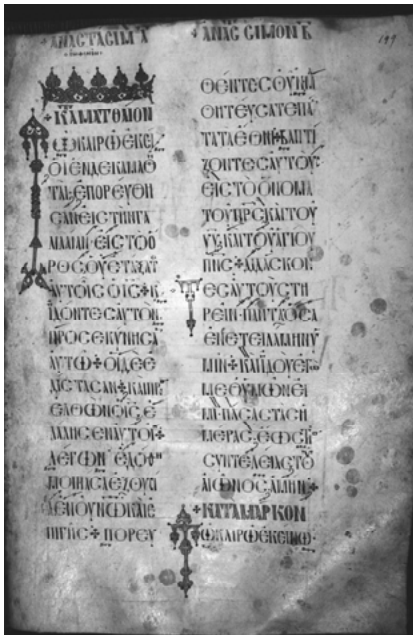 ΑΝΑϹΤΑϹΙΜ Α
ΩΚΑΙΡΩΕΚΕΙ
ΟΙΕΝΔΕΚΑΜΑΘ
ΤΑΙΕΠΟΡΕΥΘΗ
ϹΑΝΕΙϹΤΗΝΓΑ
ΛΙΛΑΙΑΝ ΕΙϹΤΟΟ
ΡΟϹΟΥΕΤΑΞΑΤ
ΑΥΤΟΙϹΟΙϹ+Κ
ΙΔΟΝΤΕϹΑΥΤΟΝ
ΠΡΟϹΕΚΥΝΗϹΑ
ΑΥΤΩ+ΟΙΔΕΕ
ΔΙϹΤΑϹΑΝ+ΚΑΙΠΡ
ΕΛΘΩΝΟΙϹΕ
ΛΑΛΗϹΕΝΑΥΤΟΙ+
ΛΕΓΩΝ ΕΔΟΘΗ
ΜΟΙΠΑϹΑΕΞΟΥϹΙ
ΑΕΝΟΥΝΩΚΑΙΕ
ΠΙΓΗϹ+ΠΟΡΕΥ
ΑΝΑϹ ϹΙΜΟΝ Β
ΘΕΝΤΕϹΟΥΝΜΑ
ΘΗΤΕΥϹΑΤΕΠΑ
ΤΑΤΑΕΘΝΗ+ΒΑΠΤΙ
ΖΟΝΤΕϹΑΥΤΟΥϹ
ΕΙϹΤΟΟΝΟΜΑ
ΤΟΥΠΡϹΚΑΙΤΟΥ
ΥΥ ΚΑΙΤΟΥΑΓΙΟΥ
ΠΝϹ+ΔΙΔΑϹΚΟΝ
ΤΕϹΑΥΤΟΥϹΤΗ
ΡΕΙΝ ΠΑΝΤΑΟϹΑ
ΕΝΕΤΕΙΛΑΜΗΝΥ
ΜΙΝ+ΚΑΙΙΔΟΥΕΓΩ
ΜΕΘΥΜΩΝΕΙ
ΜΙ ΠΑϹΑϹΤΑϹΗ
ΜΕΡΑϹ ΕΩϹΤΗ
ϹΥΝΤΕΛΕΙΑϹΤΟ
ΑΙΩΝΟϹ ΑΜΗΝ+
+ΚΑΤΑΜΑΡΚΟΝ
ΤΩΚΑΙΡΩΕΚΕΙΝΩ